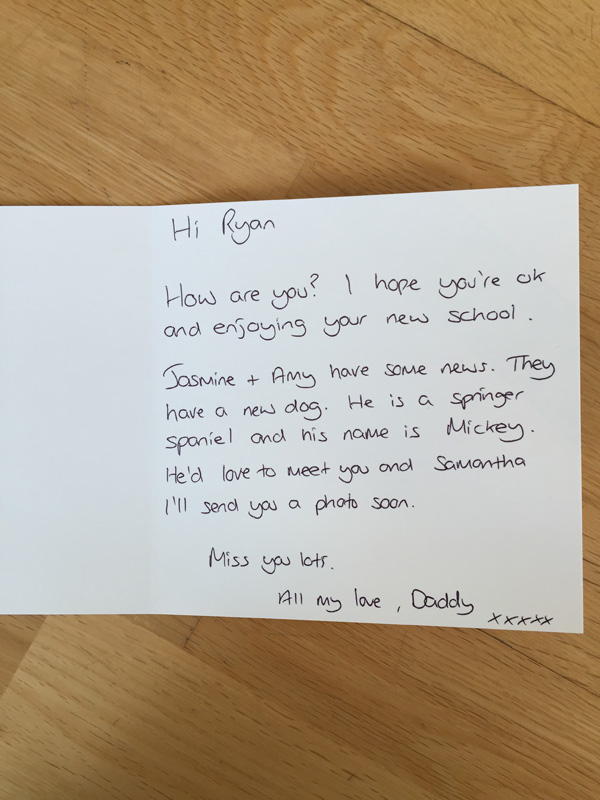 Hi Ryan
How are you? I hope you're ok
and enjoying your new school.
Jasmine + Amy have some news. They
have a new dog. He is a springer
spaniel and his name is Mickey.
He'd love to meet you and Samantha
I'll send you a photo soon.
Miss you lots.
All my love, Daddy
xxxxx